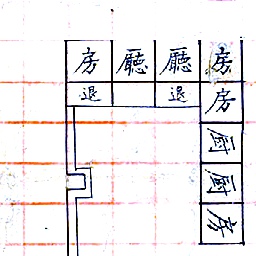 房 廳 廳 房
退 退 房
厨
厨
房